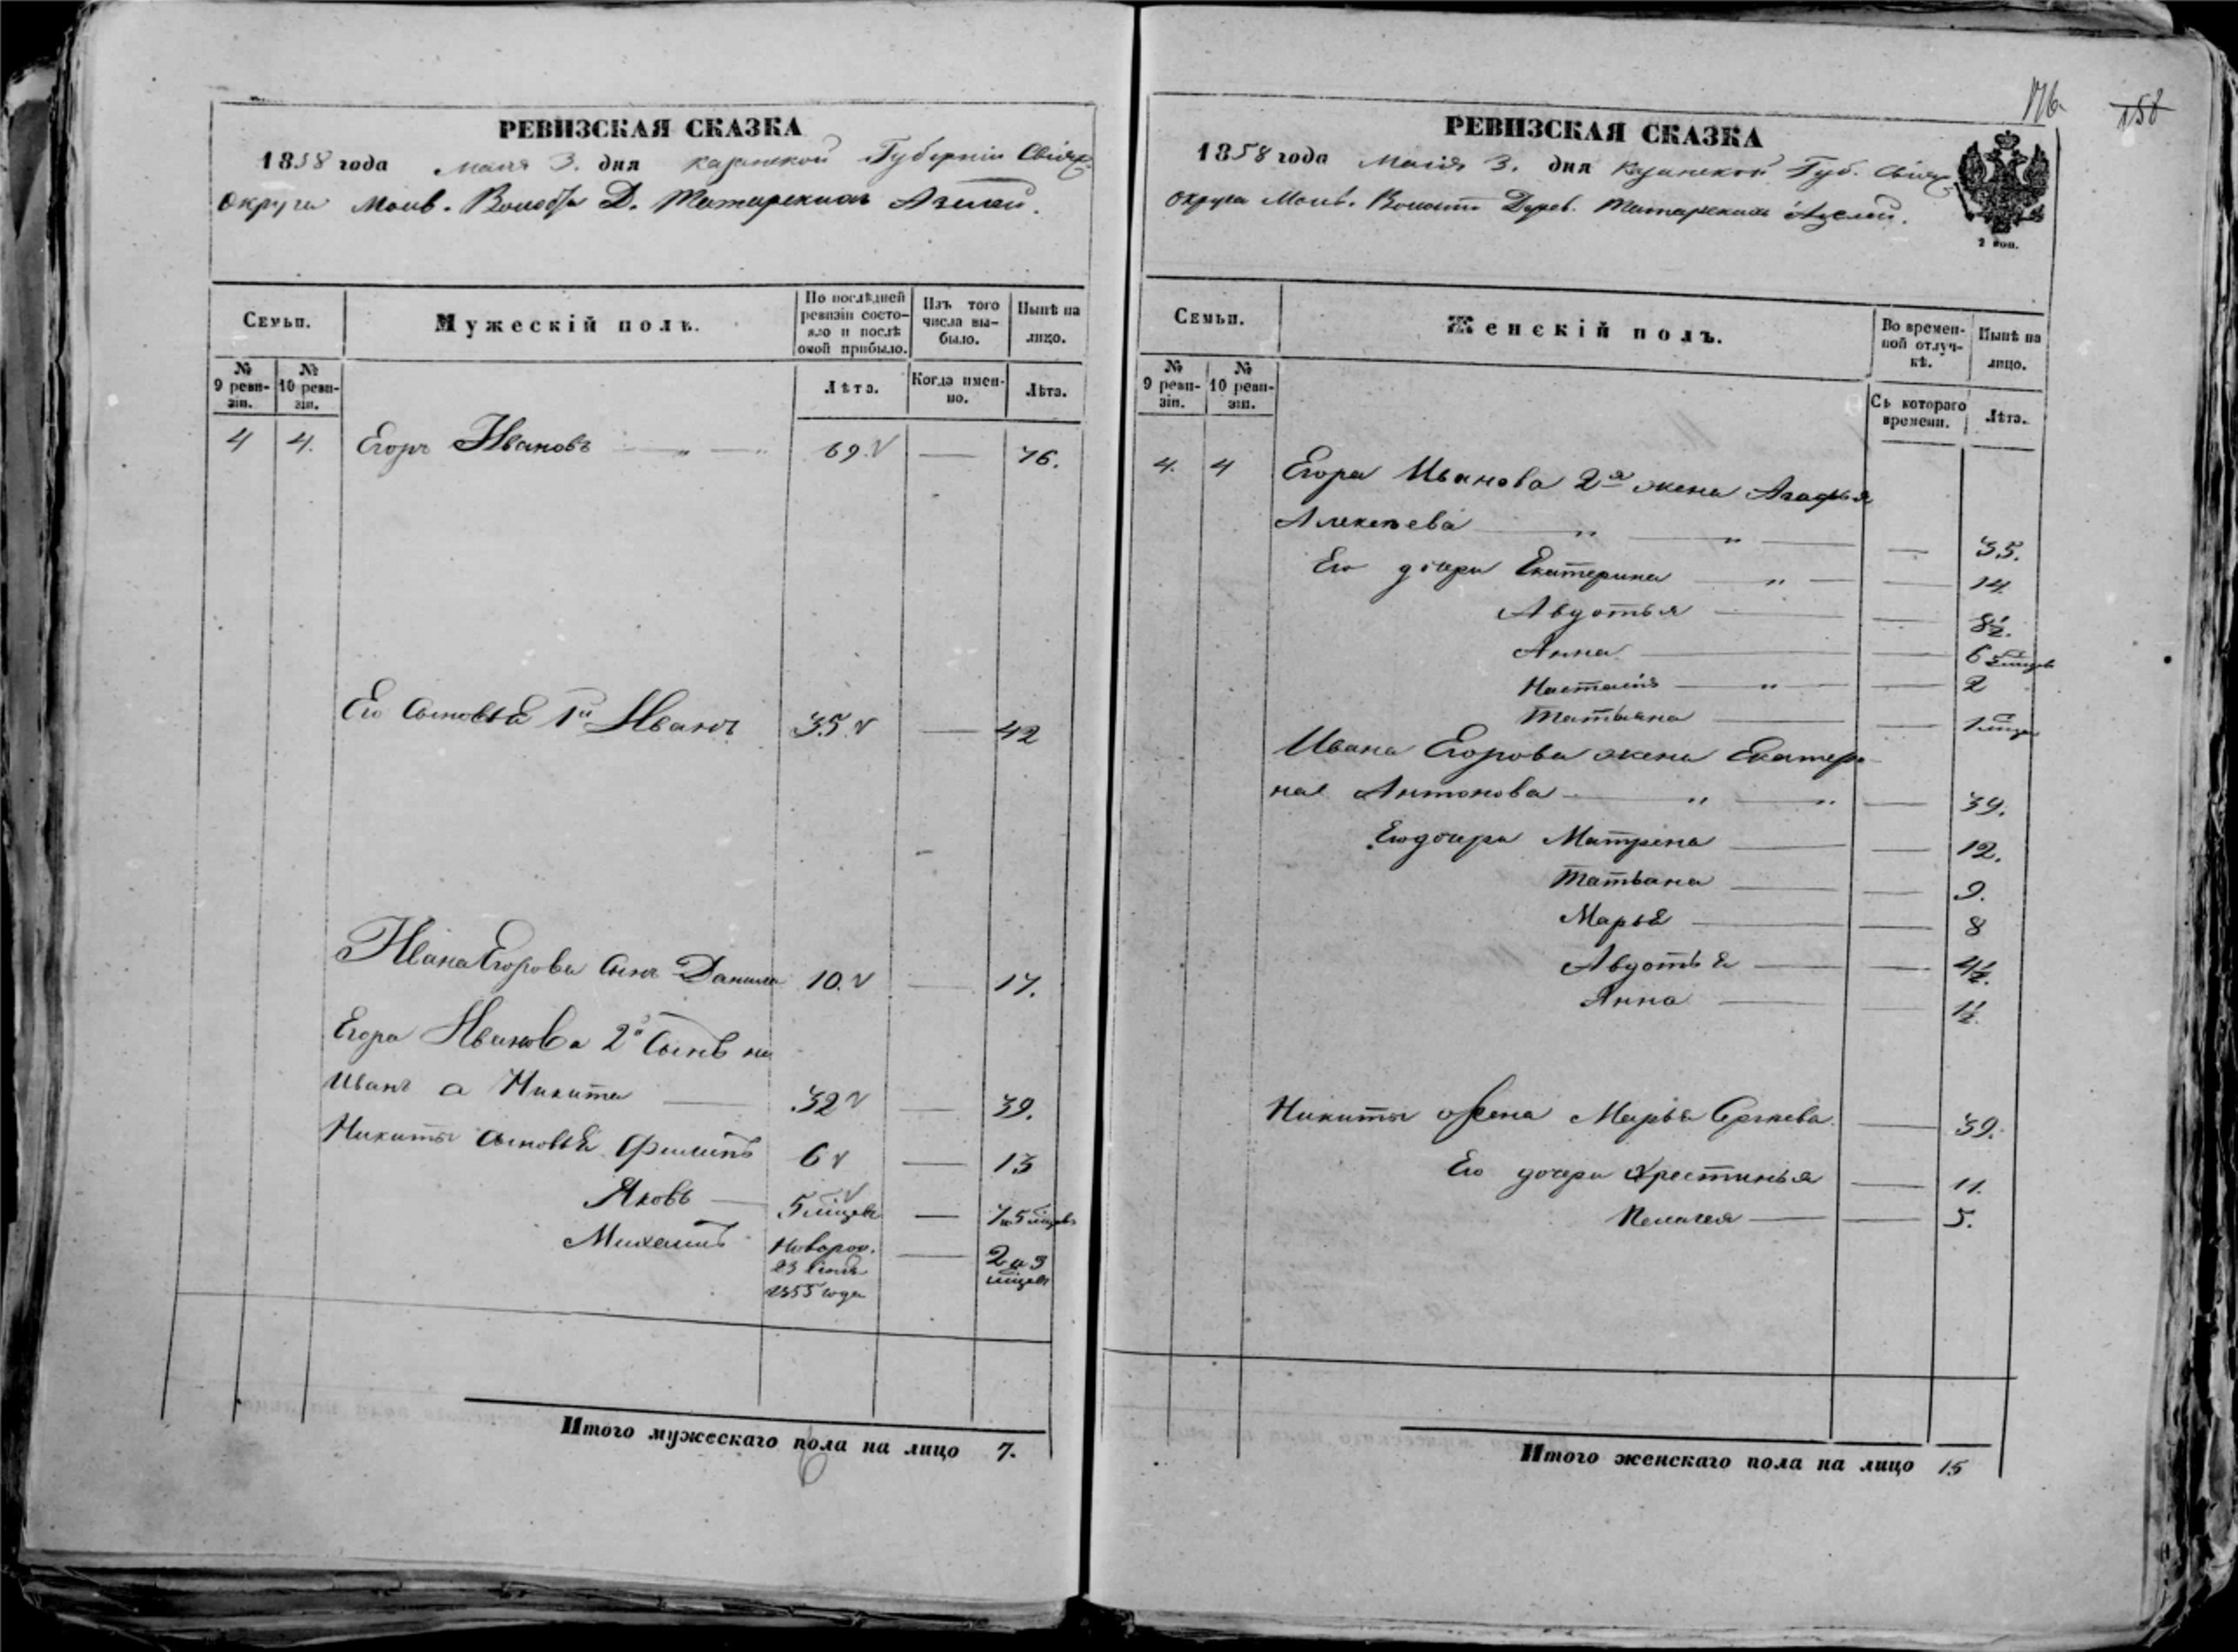 РЕВИЗСКАЯ СКАЗКА
1858 года Маія 3. дня Казанской Губерніи Свіяж.
Округи Моив. Волости Д. Татарскихъ Азелей.
Семьи.
Мужескій полъ.
По послѣдней ревизіи состояло и послѣ оной прибыло.
Изъ того числа выбыло.
Нынѣ на лицо.
№ 9 ревизіи.
№ 10 ревизіи.
Лѣта.
Когда именно.
Лѣта.
4 4. Егоръ Ивановъ — „ — „ 69. — 76.
Его сыновья 1й Иванъ 35. — 42
Ивана Егорова сынъ Данила 10. — 17.
Егора Иванова 2й сынъ не
Иванъ а Никита — 32 — 39.
Никиты сыновья Филипъ 6 — 13
Яковъ — 5 мѣсцевъ — 7 и 5 мѣсцевъ
Михаилъ Новорож. — 2 и 9
23 Іюля мѣсцевъ
1855 года
Итого мужескаго пола на лицо 7.
176
158
РЕВИЗСКАЯ СКАЗКА
1858 года Маія 3. дня Казанской Губ. Свіяж.
Округа Моив. Волости Дерев. Татарскихъ Азелей.
2 коп.
Семьи.
Женскій полъ.
Во временной отлучкѣ.
Нынѣ на лицо.
№ 9 ревизіи.
№ 10 ревизіи.
Съ котораго времени.
Лѣта.
4. 4 Егора Иванова 2я жена Агафья
Алексѣева — „ — „ — — 35.
Его дочери Екатерина — „ — — 14.
Авдотья — — 8½.
Анна — — 6 мѣсцевъ
Настасія — „ — — 2
Татьяна — — 1 мѣсца
Ивана Егорова жена Екатери-
на Антонова — „ — „ — 39.
Его дочери Матрена — — 12.
Татьяна — — 9.
Марья — — 8
Авдотья — — 4½.
Анна — — 1½.
Никиты жена Марья Сергѣева. — 39.
Его дочери Христинья — 11.
Пелагея — — 5.
Итого женскаго пола на лицо 15